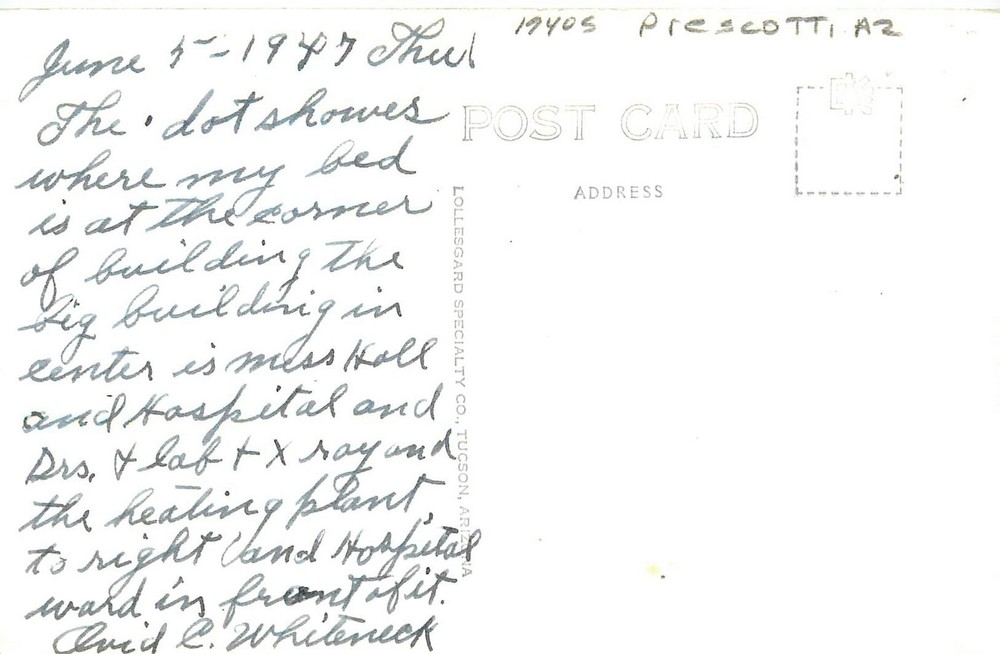 1940s Prescott, AZ
June 5-1947 Thur
The • dot showes
where my bed
is at the corner
of building the
big building in
center is mess Hall
and Hospital and
Drs. & lab + X ray and
the heating plant,
to right and Hospital
ward in front of it.
Ovid C. Whiteneck
POST CARD
ADDRESS
LOLLESGARD SPECIALTY CO., TUCSON, ARIZONA